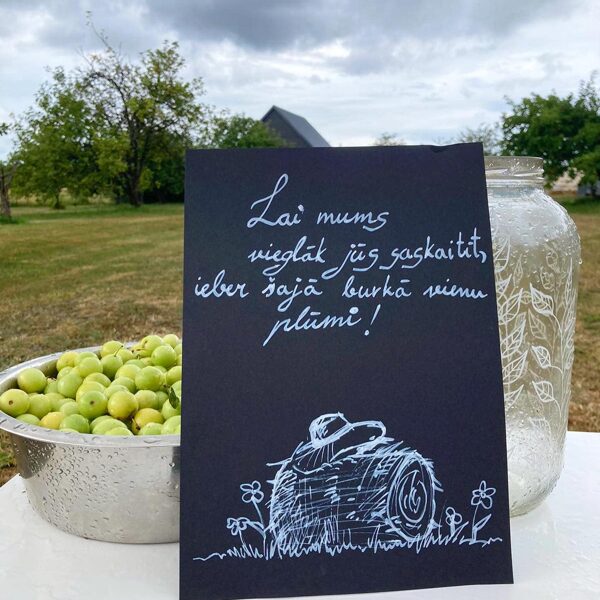 Lai mums
vieglāk jūs saskaitīt,
ieber šajā burkā vienu
plūmi!